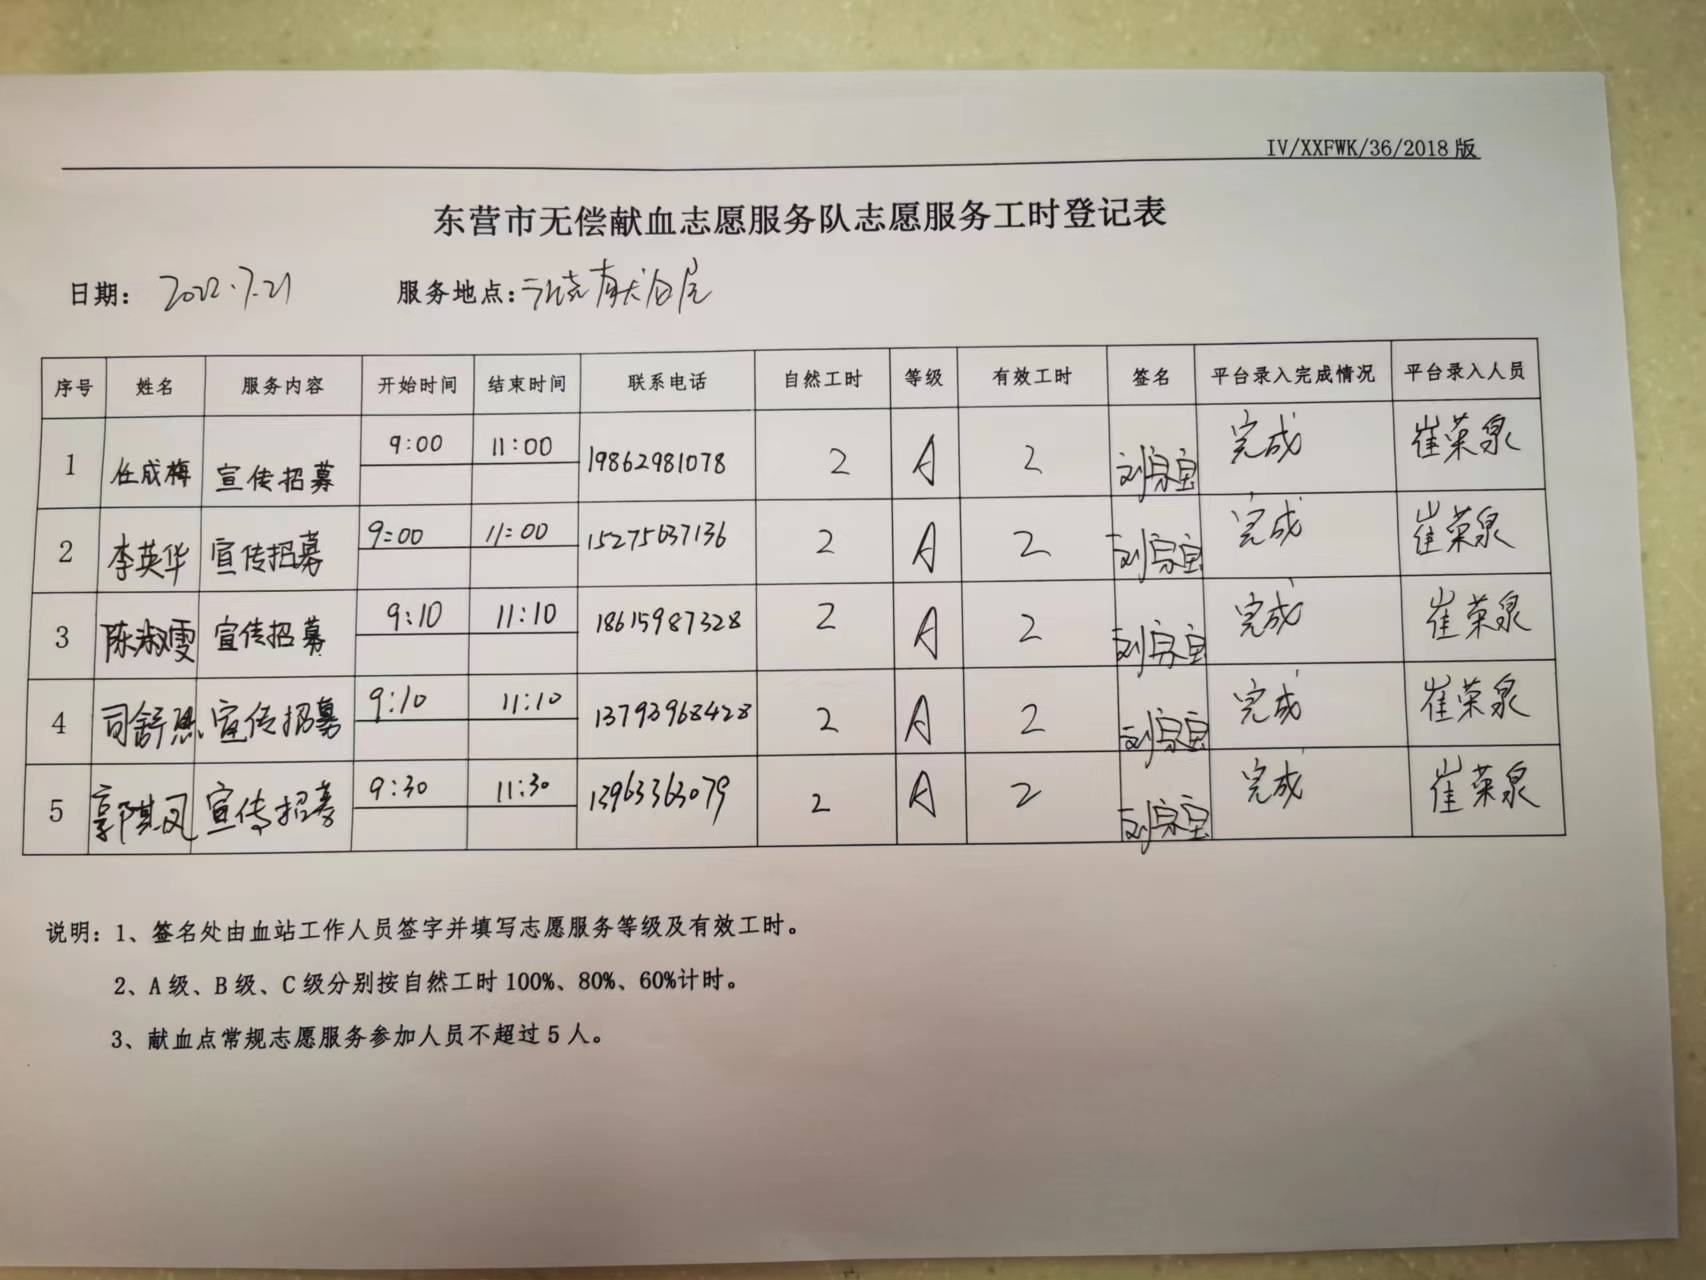 IV/XXFWK/36/2018版
东营市无偿献血志愿服务队志愿服务工时登记表
日期： 2022.7.21 服务地点：广饶献血屋
序号 姓名 服务内容 开始时间 结束时间 联系电话 自然工时 等级 有效工时 签名 平台录入完成情况 平台录入人员
1 任成梅 宣传招募 9:00 11:00 19862981078 2 A 2 完成 崔荣泉
2 李英华 宣传招募 9:00 11:00 15275637136 2 A 2 完成 崔荣泉
3 陈淑雯 宣传招募 9:10 11:10 18615987328 2 A 2 完成 崔荣泉
4 司舒 宣传招募 9:10 11:10 13793968428 2 A 2 完成 崔荣泉
5 郭洪凤 宣传招募 9:30 11:30 13963363079 2 A 2 完成 崔荣泉
说明：1、签名处由血站工作人员签字并填写志愿服务等级及有效工时。
2、A级、B级、C级分别按自然工时100%、80%、60%计时。
3、献血点常规志愿服务参加人员不超过5人。